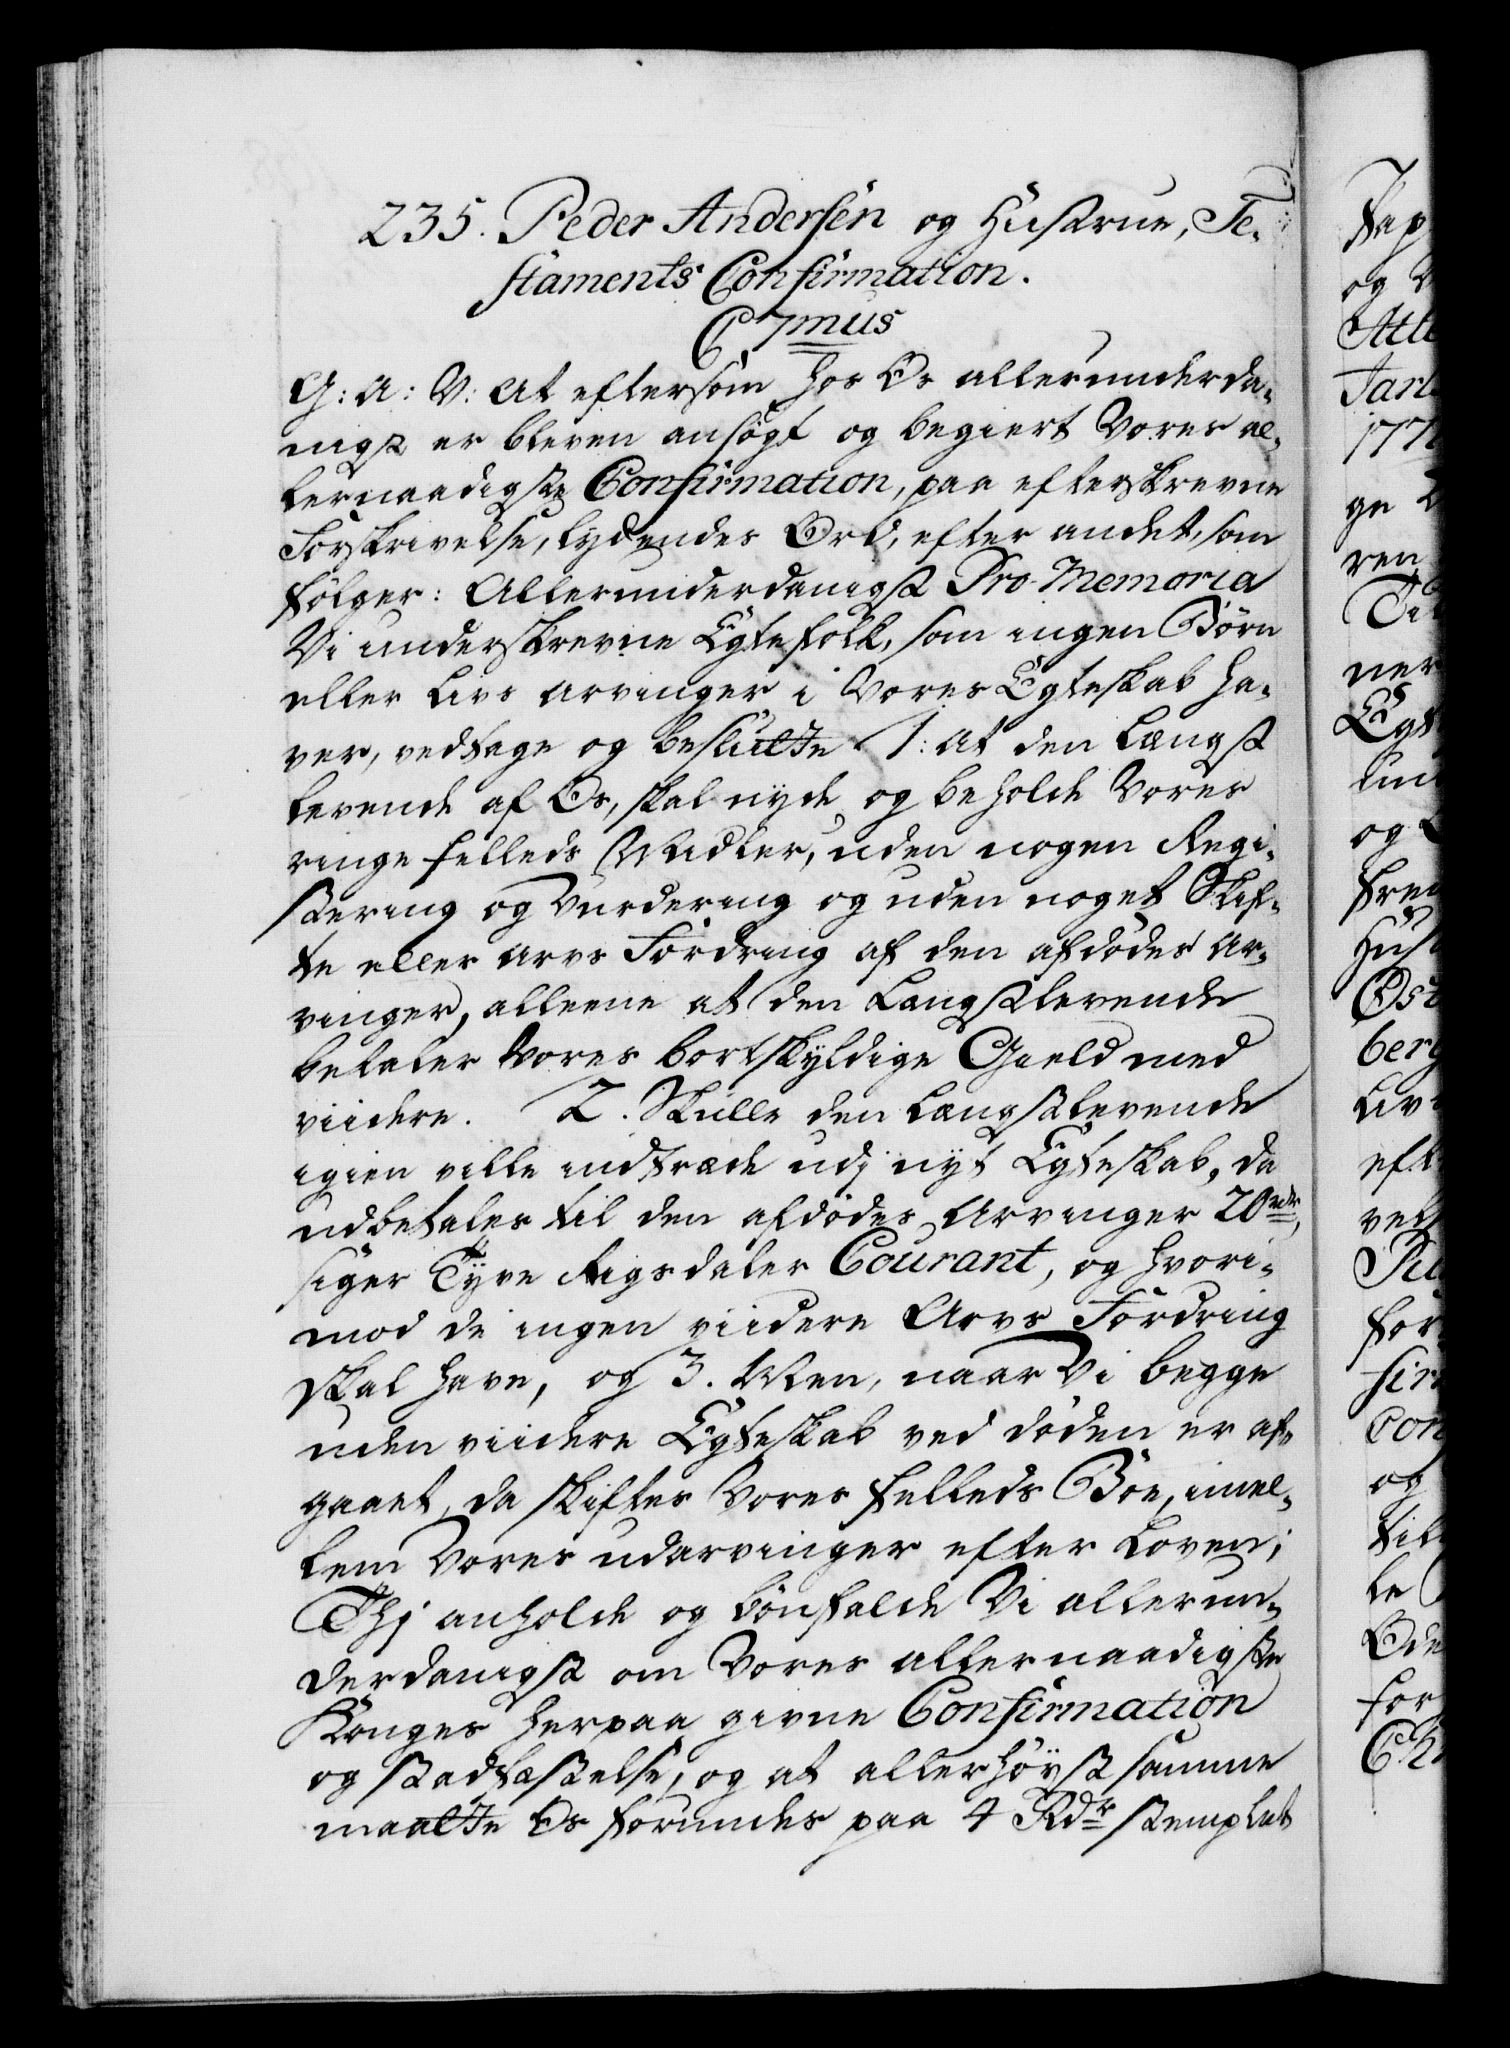 235. Peder Andersen og Hustrue, Te-
staments Confirmation.
C 7mus
G: A: V: At eftersom hos Os allerunderda-
nigst er bleven ansøgt og begiert Vores al-
lernaadigste Confirmation, paa efterskrevne
Forskrivelse, lydendes Ord, efter andet, som
følger: Allerunderdanigst Pro-Memoria
Vi underskrevne Egtefolk, som ingen Børn
eller livs arvinger i Vores Egteskab ha-
ver, vedtage og beslutte 1: At den Længst
levende af Os, skal nyde og beholde Vores
ringe fælleds Midler, uden nogen Regi-
stering og Vurdering og uden noget Skif-
te eller arvs Fordring af den afdødes Ar-
vinger, alleene at den Længstlevende
betaler Vores bortskyldige Gield med
viidere. 2. Skulle den Længstlevende
igien ville indtræde udj nyt Egteskab, da
udbetales til den afdødes Arvinger 20 rdr,
siger Tyve Rigsdaler Courant, og hvori-
mod de ingen viidere Arvs Fordring
skal have, og 3. Men, naar Vi begge
uden viidere Egteskab ved døden er af-
gaaet, da skiftes Vores fælleds Boe, imel-
lem Vores udarvinger efter Loven;
Thj anholde og bønfalde Vi allerun-
derdanigst om Vores allernaadigste
Konges herpaa givne Confirmation
og stadfæstelse, og at allerhøyst samme
maatte Os forundes paa 4 Rdr stemplet